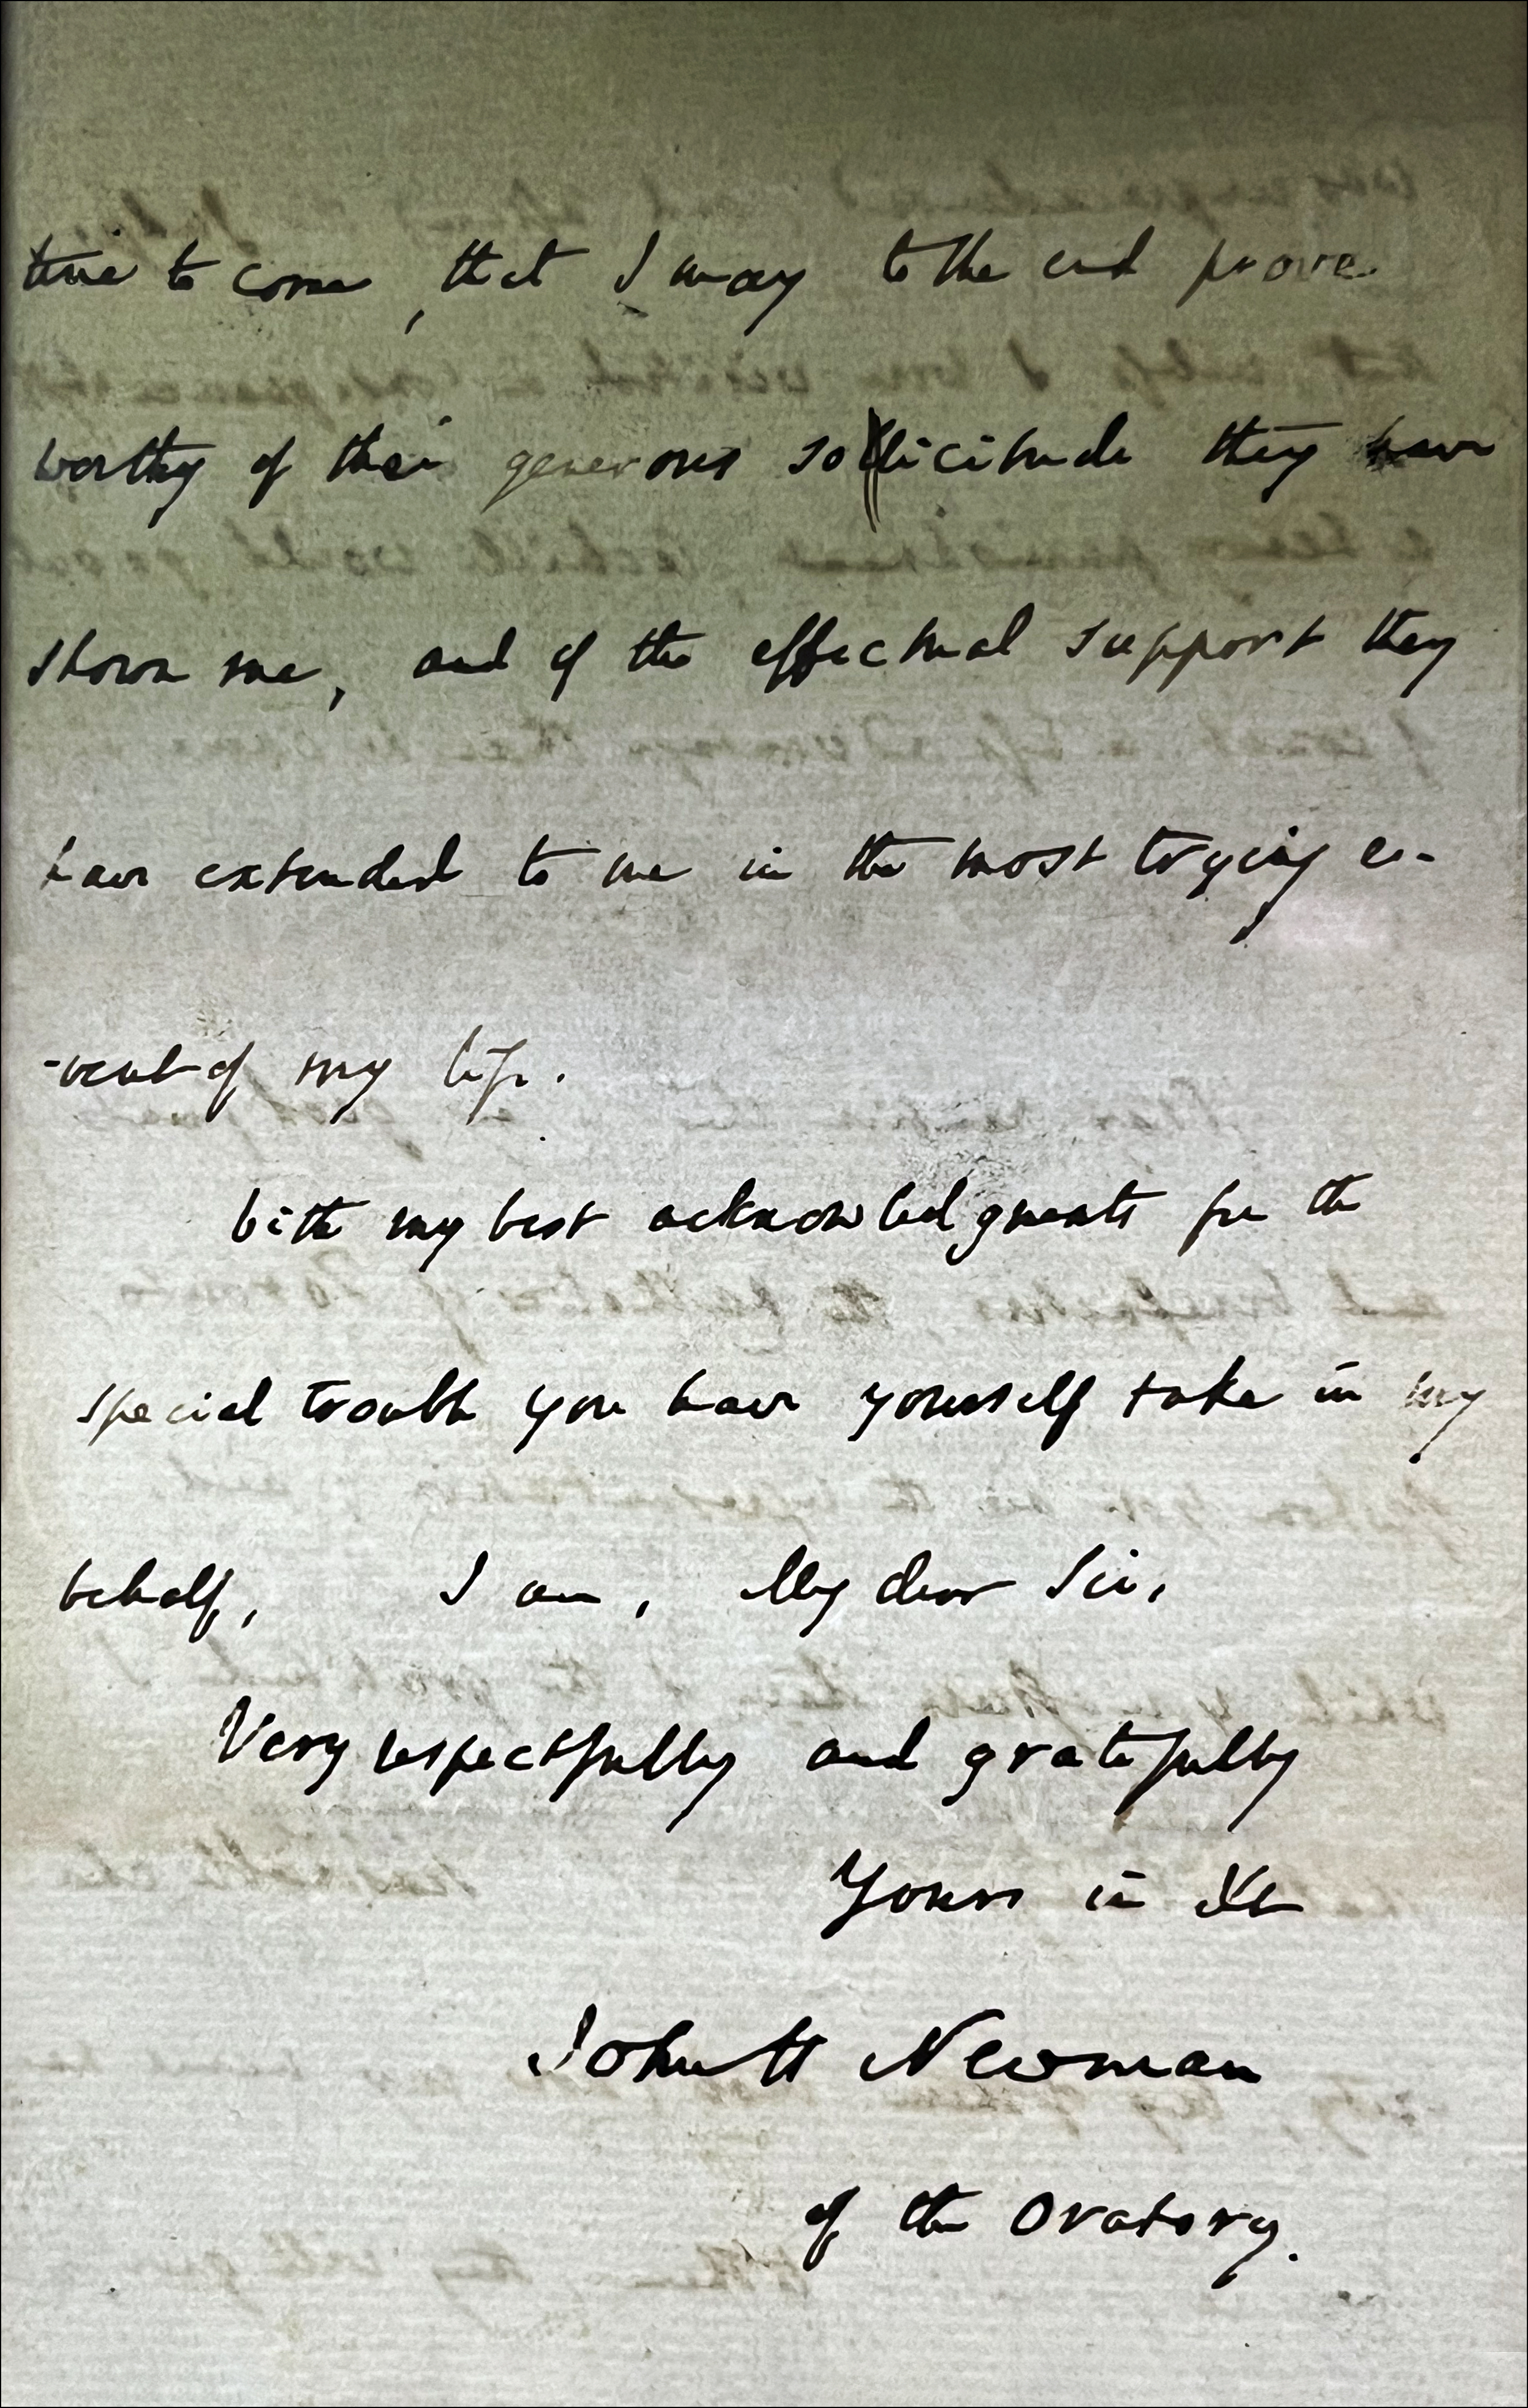 time to come, that I may to the end prove
worthy of their generous sollicitude they have
shown me, and of the effectual support they
have extended to me in the most trying e-
-vent of my life.
With my best acknowledgments for the
special trouble you have yourself take in my
behalf, I am, My dear Sir,
Very respectfully and gratefully
Yours in Xt
John H Newman
of the Oratory.